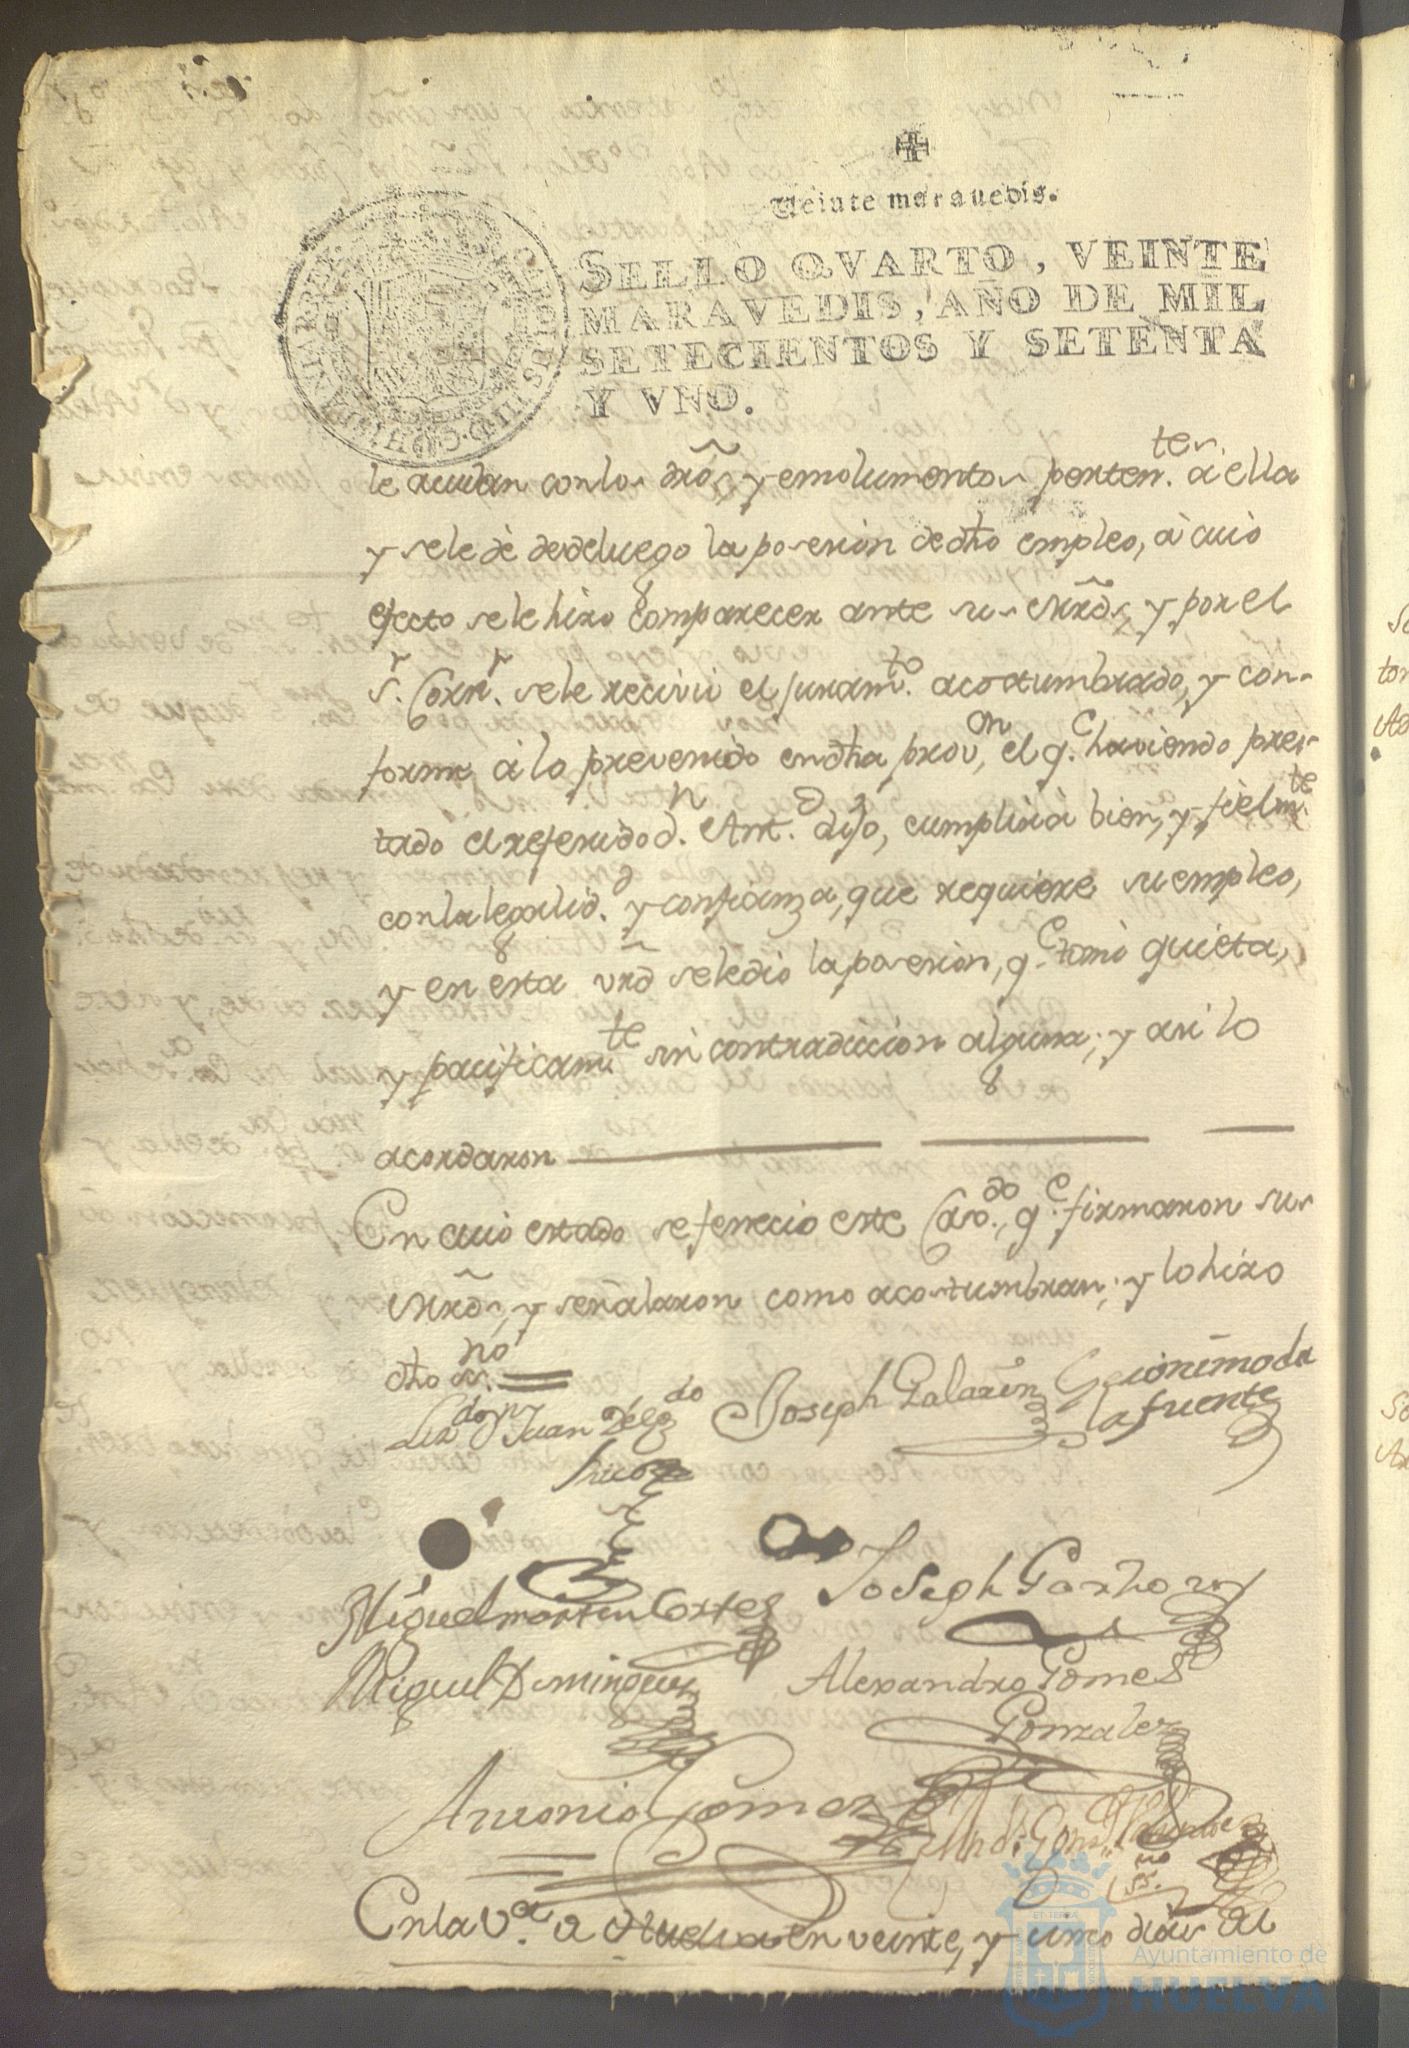 Veinte maravedis.
SELLO QVARTO, VEINTE
MARAVEDIS, AÑO DE MIL
SETECIENTOS Y SETENTA
Y VNO.
le acudan con los dr̃os, y emolumentos perten.tes à ella
y se le dè desde luego la posesion de dh̃o empleo, à cuio
efecto se le hizo comparecer ante sus mr̃ds, y por el
S.r Corr.r se le recivió el juram.to acostumbrado, y con-
forme á lo prevenido en dh̃a prov.on, el q.e haviendo pres-
tado el referido d.n Ant.o dijo, cumplirà bien, y fielm.te
con la legalid.d y confianza, que requiere su empleo,
y en esta vr̃d se le dio la posesion, q.e tomò quieta,
y pacificam.te sin contradiccion alguna; y asi lo
acordaron
En cuio estado se fenecio este Cavd.o, q.e firmaron sus
mr̃ds, y señalaron como acostumbran; y lo hizo
dh̃o ss.no
Liz.do Dn Juan Delg.do
Joseph Galazin
Geronimo de
la fuente
Miguel martin Cortes
Joseph Garzho
Miguel Dominguez
Alexandro Gomes
Gonzalez
Antonio Gomez
ss.no
En la V.a de Huelva en veinte, y uno dias del
Ayuntamiento de
HUELVA